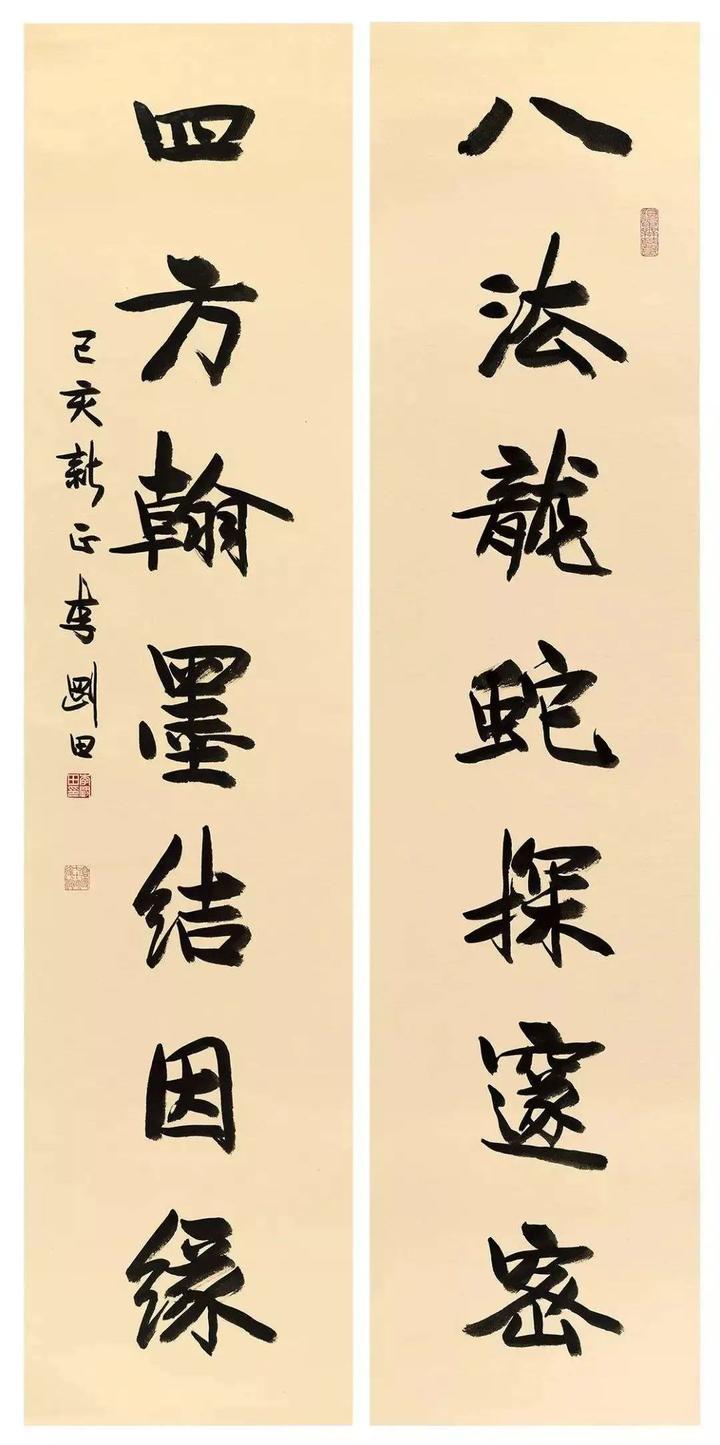 八法龍蛇探邃密
四方翰墨结因缘
己亥新正李剛田